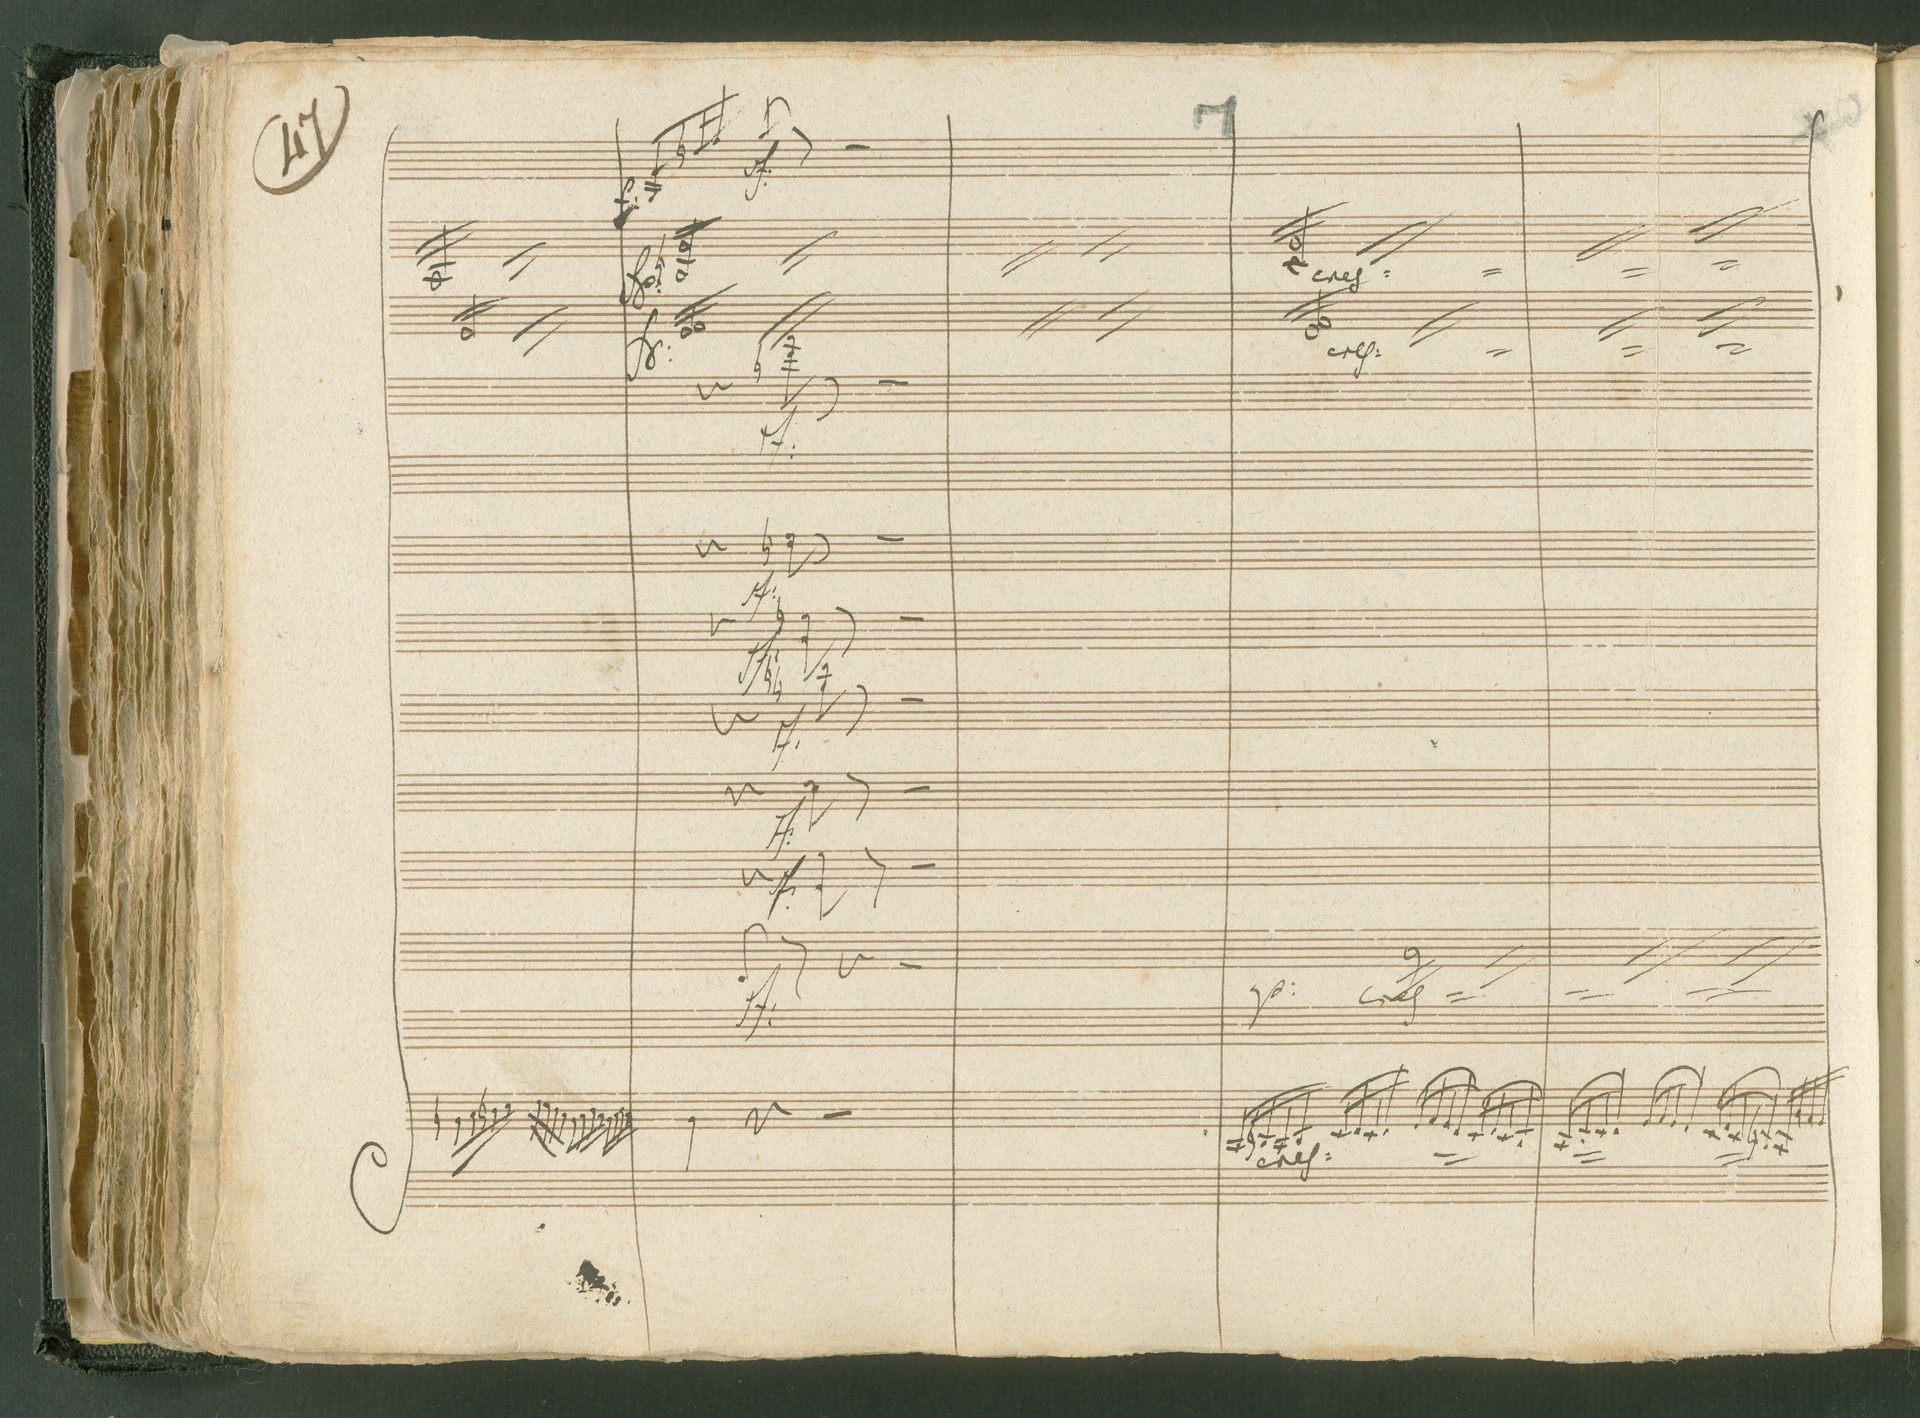 47
7
ff:
cresc:
cresc:
ff:
ff:
ff:
ff:
ff:
ff:
p: cresc
ff:
cresc: